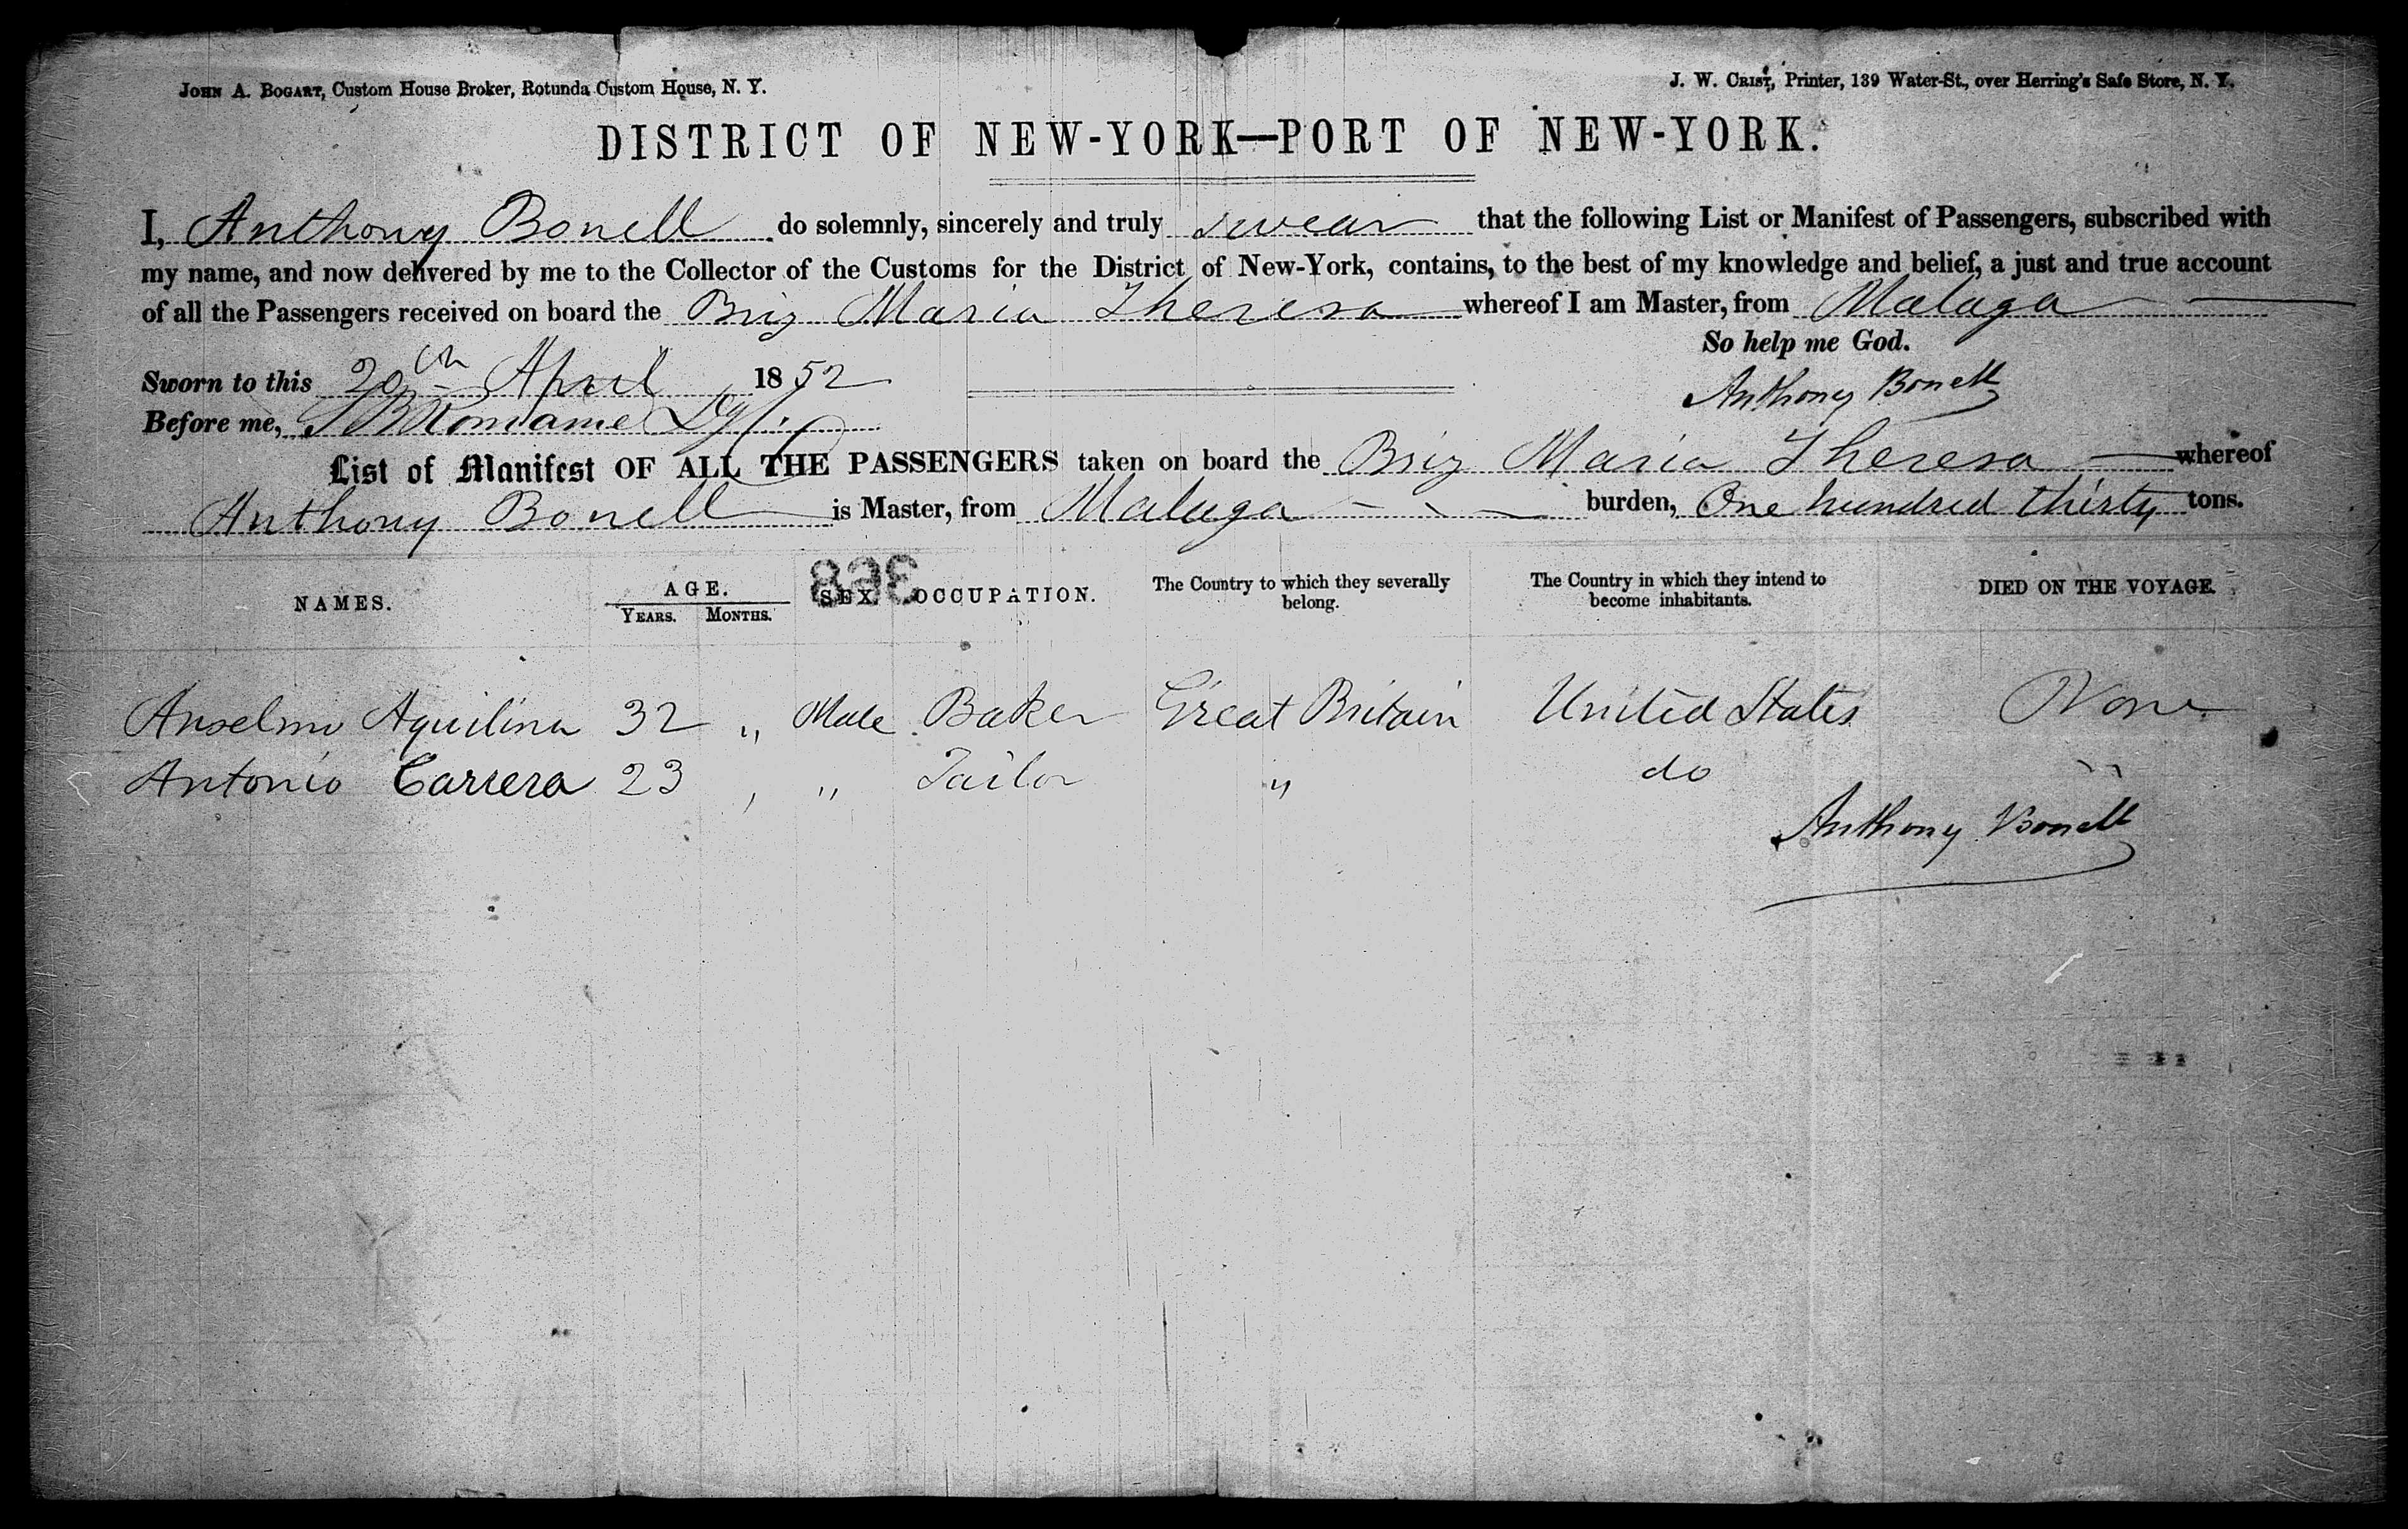 JOHN A. BOGART, Custom House Broker, Rotunda Custom House, N. Y.
J. W. CRIST, Printer, 139 Water-St., over Herring's Safe Store, N. Y.
DISTRICT OF NEW-YORK—PORT OF NEW-YORK.
I, Anthony Bonell do solemnly, sincerely and truly swear that the following List or Manifest of Passengers, subscribed with
my name, and now delivered by me to the Collector of the Customs for the District of New-York, contains, to the best of my knowledge and belief, a just and true account
of all the Passengers received on board the Brig Maria Theresa whereof I am Master, from Malaga
So help me God.
Sworn to this 20th April 1852
Anthony Bonell
Before me,
List of Manifest OF ALL THE PASSENGERS taken on board the Brig Maria Theresa whereof
Anthony Bonell is Master, from Malaga burden, One hundred thirty tons.
368
NAMES. AGE. YEARS. MONTHS. SEX OCCUPATION. The Country to which they severally belong. The Country in which they intend to become inhabitants. DIED ON THE VOYAGE.
Anselmo Aquilina 32 " Male Baker Great Britain United States None
Antonio Carrera 23 , " Tailor " do "
Anthony Bonell